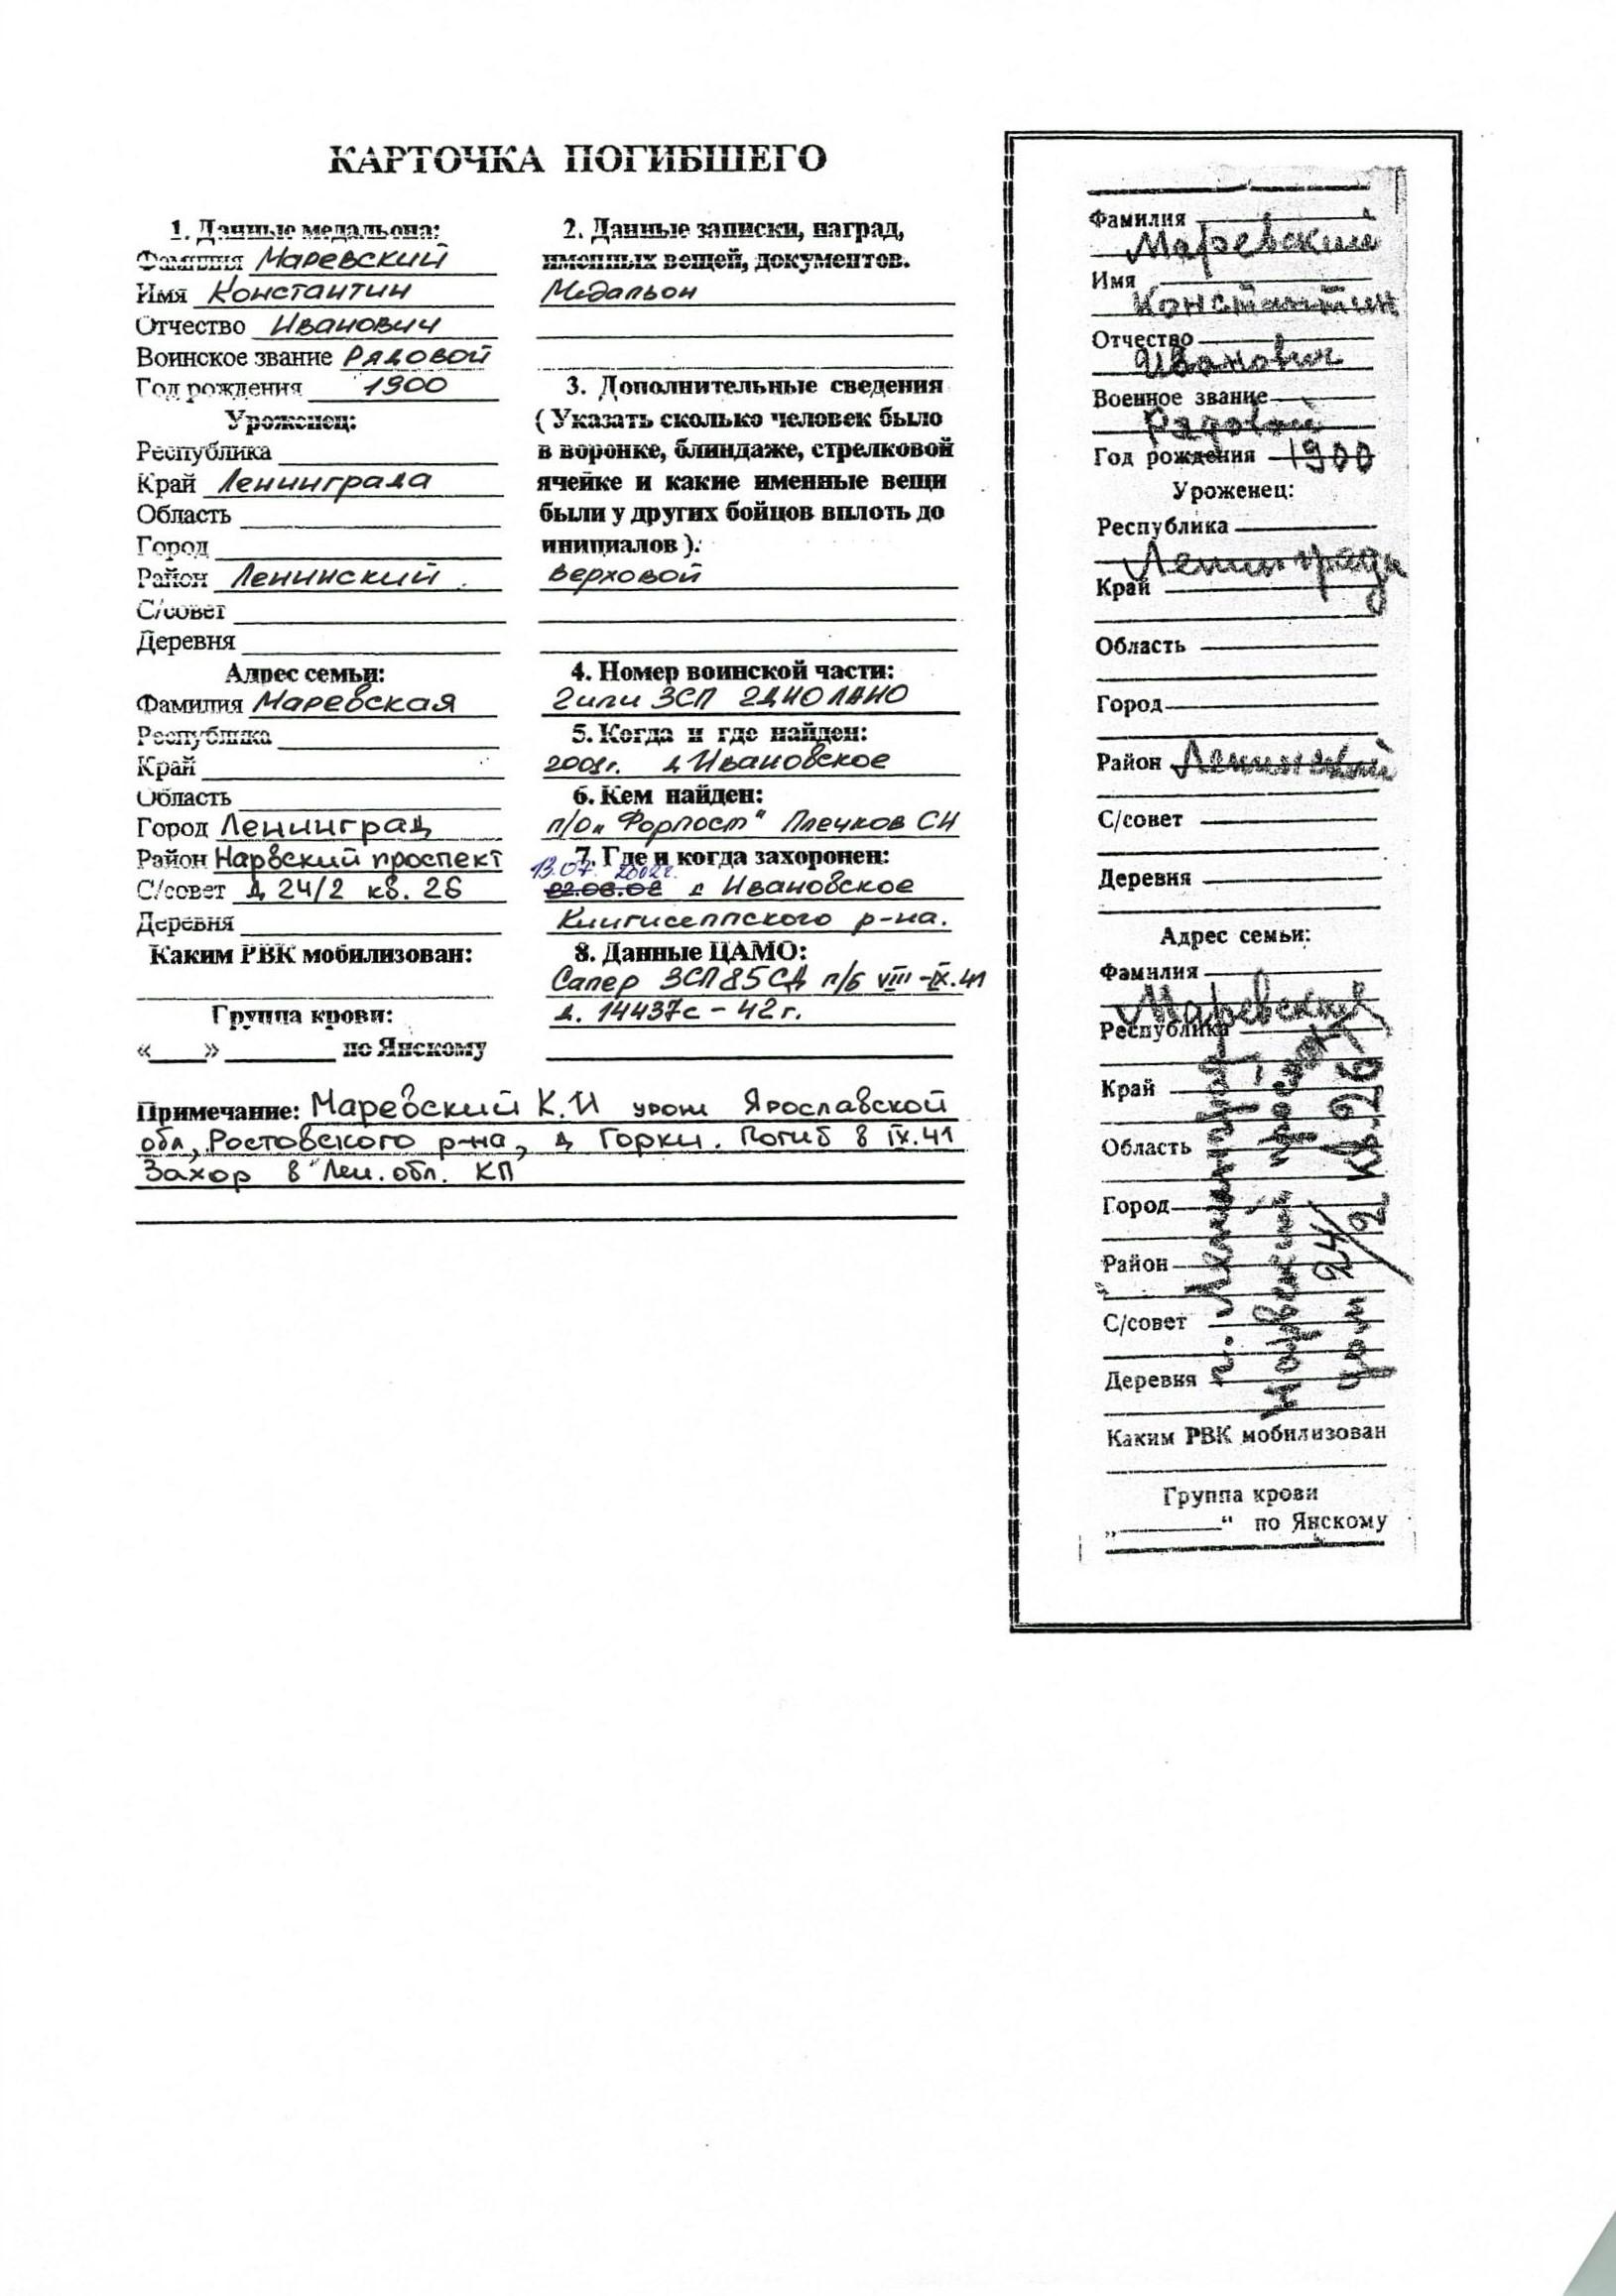 КАРТОЧКА ПОГИБШЕГО
1. Данные медальона:
Фамилия Маревский
Имя Константин
Отчество Иванович
Воинское звание Рядовой
Год рождения 1900
Уроженец:
Республика
Край Ленинграда
Область
Город
Район Ленинский
С/совет
Деревня
Адрес семьи:
Фамилия Маревская
Республика
Край
Область
Город Ленинград
Район Нарвский проспект
С/совет д 24/2 кв. 26
Деревня
Каким РВК мобилизован:
Группа крови:
« » по Янскому
2. Данные записки, наград,
именных вещей, документов.
Медальон
3. Дополнительные сведения
( Указать сколько человек было
в воронке, блиндаже, стрелковой
ячейке и какие именные вещи
были у других бойцов вплоть до
инициалов ).
Верховой
4. Номер воинской части:
2 или 3СП 2ДНО ЛАНО
5. Когда и где найден:
2001г. д Ивановское
6. Кем найден:
п/о „Форпост“ Плечков СН
7. Где и когда захоронен:
13.07. 2002г.
22.06.02 д Ивановское
Кингисеппского р-на.
8. Данные ЦАМО:
Сапер 3СП 85СД п/б VIII-IX.41
д. 14437с - 42г.
Примечание: Маревский К.И урож Ярославской
обл, Ростовского р-на, д Горки. Погиб 8 IX.41
Захор в Лен.обл. КП
Фамилия
Маревский
Имя
Константин
Отчество
Иванович
Военное звание
Рядовой
Год рождения 1900
Уроженец:
Республика
Ленинграда
Край
Область
Город
Район Ленинский
С/совет
Деревня
Адрес семьи:
Фамилия
Маревский
Республика
Край
Область
Город
Район
С/совет
Деревня
г. Ленинград
Нарвский проспект
дом 24/2 кв. 26
Каким РВК мобилизован
Группа крови
„ “ по Янскому